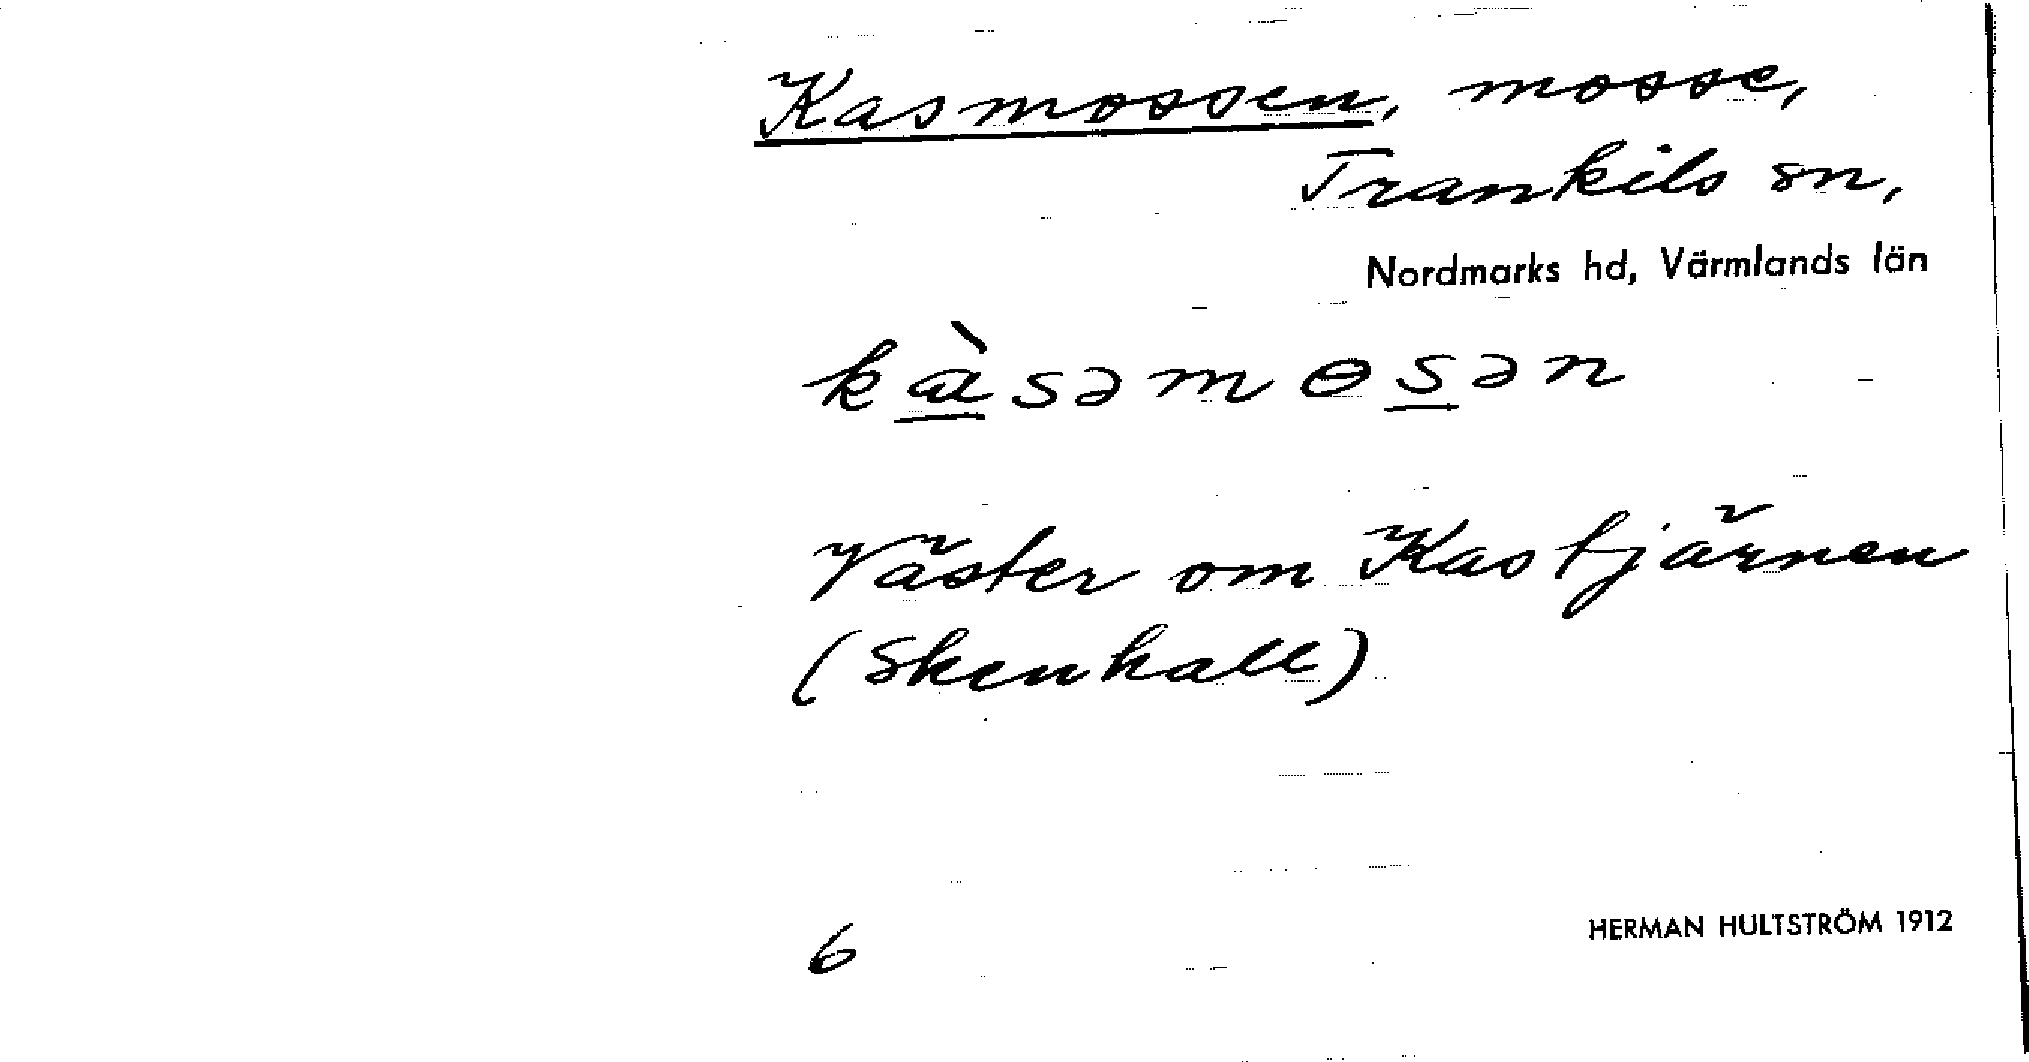 Kasmossen, mosse,
Trankils sn,
Nordmarks hd, Värmlands län
kɑ̀səmɵsən
Väster om Kastjärnen
(Skenhall)
6
HERMAN HULTSTRÖM 1912